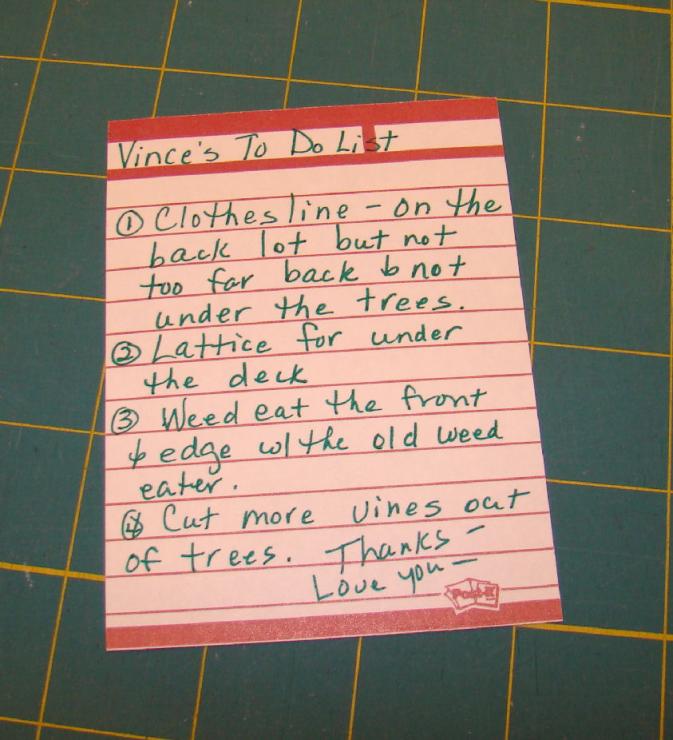 Vince's To Do List
① Clothes line - on the
back lot but not
too far back & not
under the trees.
② Lattice for under
the deck
③ Weed eat the front
& edge w/ the old weed
eater.
④ Cut more vines out
of trees. Thanks -
Love you -
Post-it